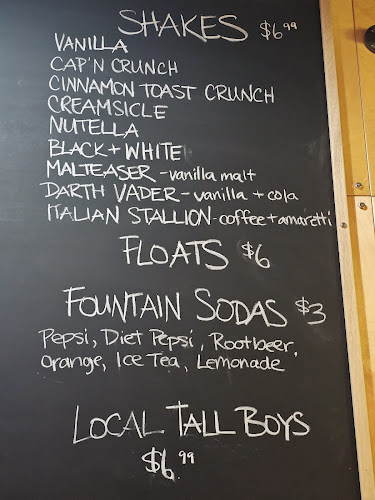 SHAKES $6.99
VANILLA
CAP'N CRUNCH
CINNAMON TOAST CRUNCH
CREAMSICLE
NUTELLA
BLACK + WHITE
MALTEASER - vanilla malt
DARTH VADER - vanilla + cola
ITALIAN STALLION - coffee + amaretti
FLOATS $6
FOUNTAIN SODAS $3
Pepsi, Diet Pepsi, Rootbeer,
Orange, Ice Tea, Lemonade
LOCAL TALL BOYS
$6.99